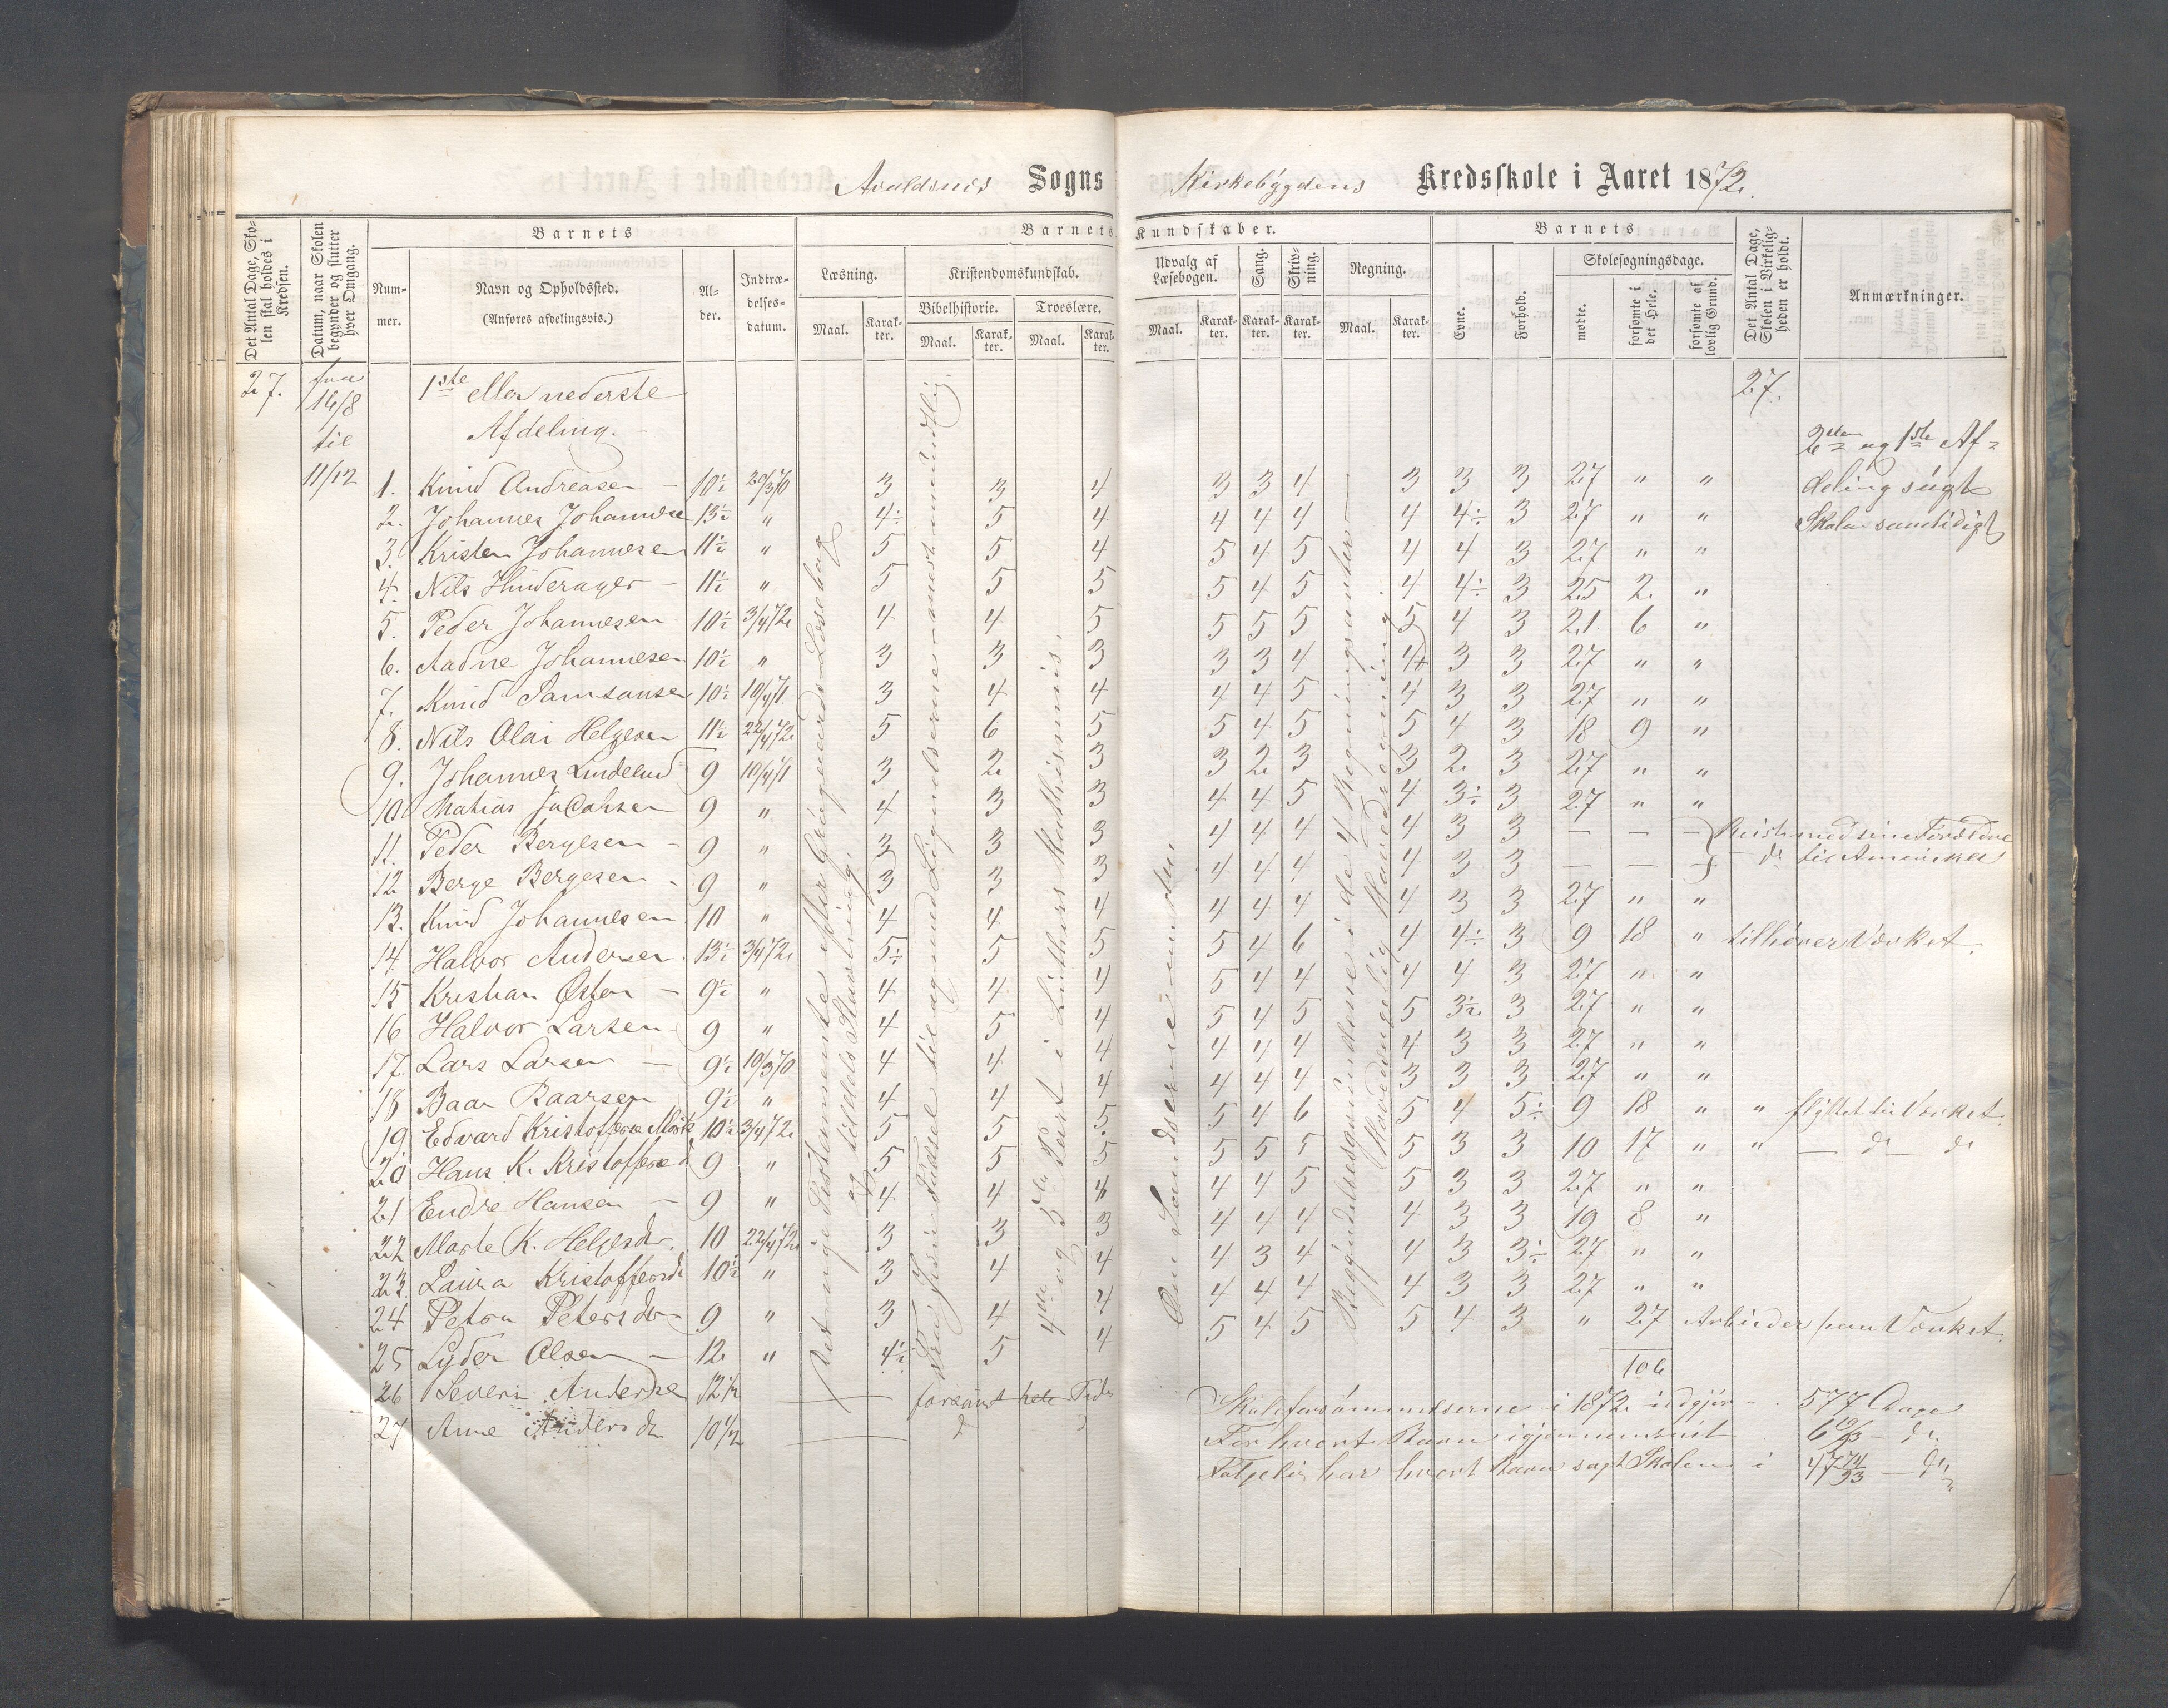 Avaldsnes Sogns Kirkebygdens Kredsskole i Aaret 1872.
Det Antal Dage, Skolen skal holdes i Kredsen.
Datum, naar Skolen begynder og slutter hver Omgang.
Barnets
Nummer.
Navn og Opholdssted.
(Anføres afdelingsvis.)
Alder.
Indtrædelsesdatum.
Barnets Kundskaber.
Læsning.
Maal. Karakter.
Kristendomskundskab.
Bibelhistorie. Troeslære.
Maal. Karakter. Maal. Karakter.
Udvalg af Læsebogen.
Maal. Karakter.
Sang. Karakter.
Skrivning. Karakter.
Regning.
Maal. Karakter.
Barnets
Evne. Forhold.
Skolesøgningsdage.
mødte. forsømte i det Hele. forsømte af lovlig Grund.
Det Antal Dage, Skolen i Virkeligheden er holdt.
Anmærkninger.
27. fra 1ste eller nederste 27.
16/8 Afdeling.
til 2den og 1ste Af=
11/12 1. Knud Andreasen 10½ 20/3 70 3 3 4 3 3 4 3 3 3 27 " " deling søgt
2. Johannes Johannesen 13½ " 4÷ 5 4 4 4 4 4 4÷ 3 27 " " Skolen samtidigt
3. Kristen Johannesen 11½ " 5 5 4 5 4 5 4 4 3 27 " "
4. Nils Hinderager 11½ " 5 5 5 5 4 5 4 4÷ 3 25 2 "
5. Peder Johannesen 10½ 3/4 72 4 4 5 5 5 5 5 4 3 21 6 "
6. Aadne Johannesen 10½ " 3 3 3 3 3 4 4+ 3 3 27 " "
7. Knud Samsonsen 10½ 10/4 71 3 4 4 4 4 5 4 3 3 27 " "
8. Nils Olai Helgesen 11½ 22/4 72 5 6 5 5 4 5 5 4 3 18 9 "
9. Johannes Lindelund 9 10/4 71 3 2 3 3 2 3 3 2 3 27 " "
10 Matias Jacobsen 9 " 4 3 3 4 4 5 4 3÷ 3 27 " "
11. Peder Bergesen 9 " 3 3 3 4 4 4 4 3 3 — — — Reist med sine Forældre
12 Berge Bergesen 9 " 3 3 3 4 4 4 4 3 3 — — — do til Amerika
13. Knud Johannesen 10 " 4 4 4 4 4 4 4 3 3 27 " "
14. Halvor Andersen 13½ 3/4 72 5÷ 5 5 5 4 6 4 4÷ 3 9 18 " tilhører Værket.
15 Kristian Østen 9½ " 4 4 4 5 4 4 4 4 3 27 " "
16 Halvor Larsen 9 " 4 5 4 5 4 5 5 3½ 3 27 " "
17. Lars Larsen 9½ 10/3 70 4 4 4 4 4 4 4 3 3 27 " "
18 Baar Baarsen 9½ " 4 4 4 4 4 4 3 3 3 27 " "
19 Edvard Kristoffersen Mork 10½ 3/4 72 5 5 5 5 4 6 5 4 5÷ 9 18 " " flyttet til Værket.
20 Hans K. Kristoffersen 9 " 5 5 5 5 5 5 5 3 3 10 17 " " — do do
21 Endre Hansen 9 " 4 4 4 4 4 5 5 3 3 27 " "
22 Marte K. Helgesdtr. 10 22/4 72 3 3 3 4 4 4 4 3 3 19 8 "
23. Laura Kristoffersdtr 10½ " 3 4 4 4 3 4 4 3 3÷ 27 " "
24 Petra Petersdtr 9 " 3 4 4 4 4 4 4 3 3 27 " "
25 Lyder Olsen 12 " 4½ 5 4 5 4 5 5 4 3 " 27 Arbeider paa Værket.
106
26 Severin Andersen 12½ — forsømt hele Tiden
27 Anne Andersdtr 10½ —
Vort nye Testamente efter Grøngaards Læsebog
og tildels Stavning.
Fra Jesu Fødsel til og med Lignelserne mest mundtlig.
4de og 5te Part i Luthers Katkismus.
Den Samme som den
Begyndelsesgrundene i de 4 Regningsarter
Hovedsagelig Hovedregning.
Skoleforsømmelserne i 1872 udgjør 577 Dage
For hvert Barn i gjennemsnit 6 19/93 do.
Følgelig har hvert Barn søgt Skolen i 47 74/93 do.